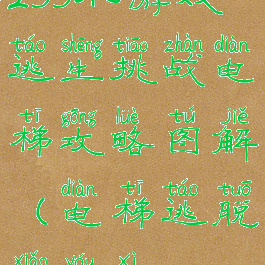 táo shēng tiāo zhàn diàn
逃生挑战电
tī gōng lüè tú jiě
梯攻略图解
diàn tī táo tuō
(电梯逃脱
xiǎo yóu xì